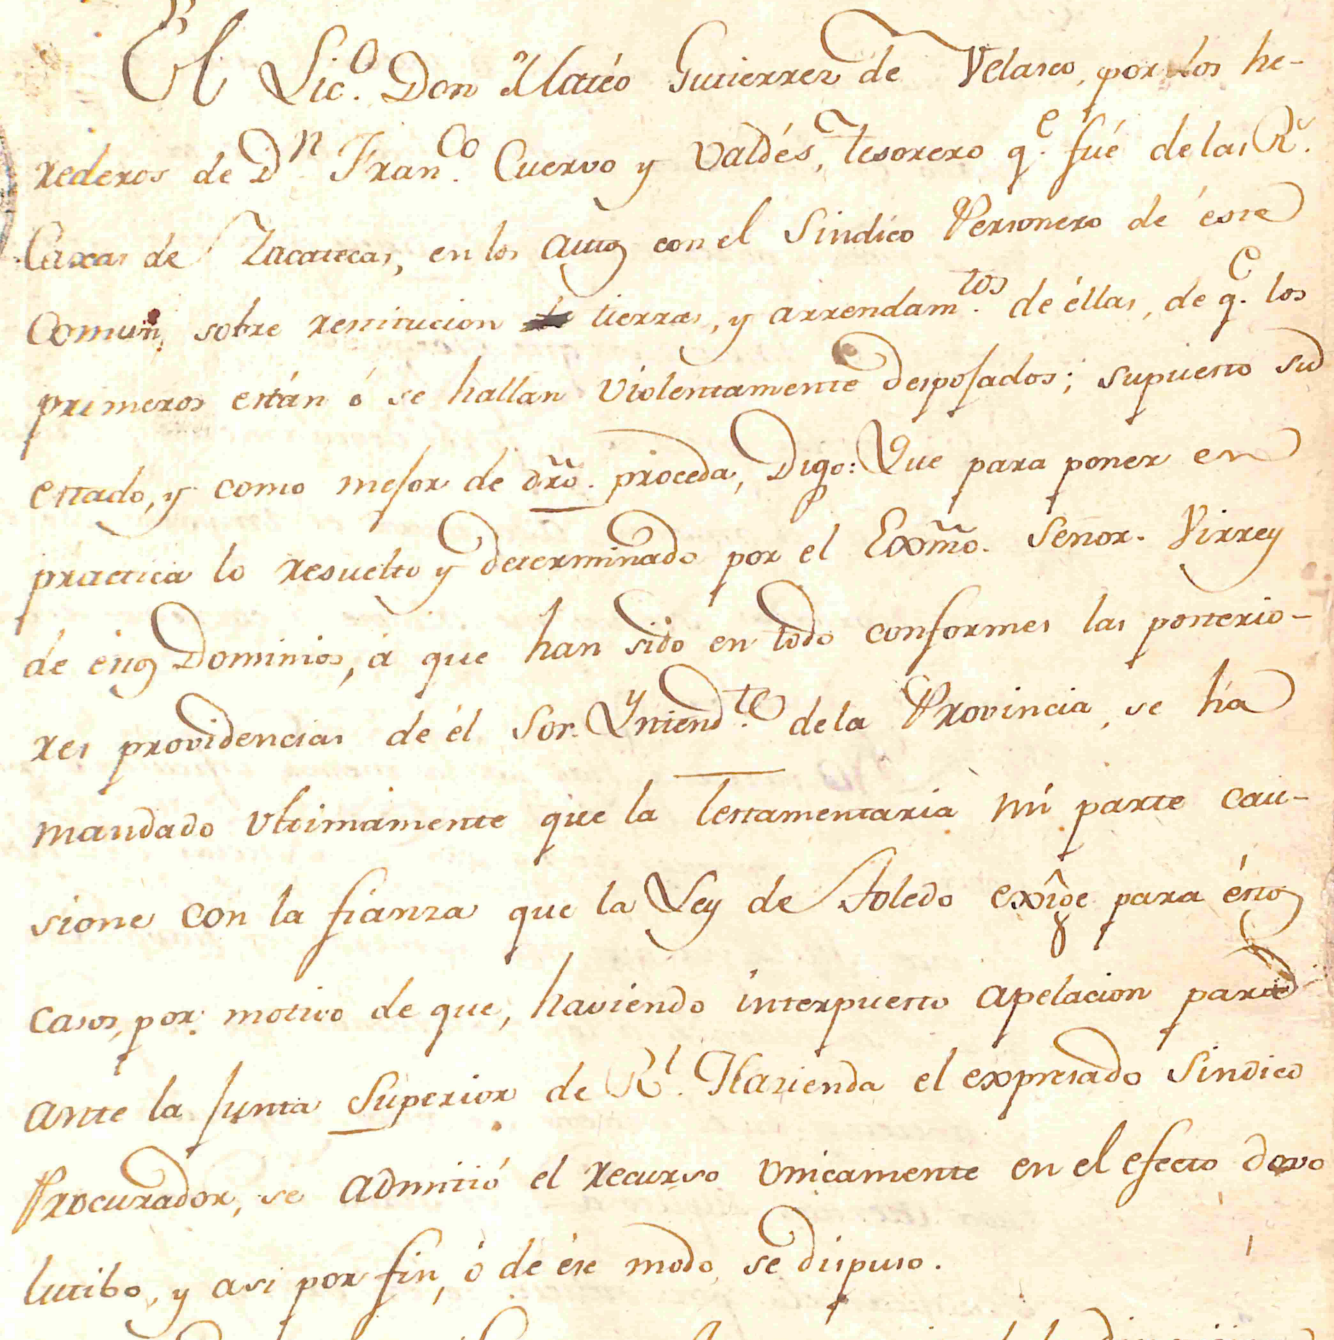 El Lic.º Don Matéo Gutierrez de Velasco, por los he-
rederos de D.n Fran.co Cuervo y Valdés, tesorero q.e fué de las R.s
Caxas de Zacatecas, en los autos con el Sindico Personero de éste
Comun, sobre restitucion de tierras, y arrendam.tos de éllas, de q.e los
primeros están ó se hallan violentamente despojados; supuesto su
estado, y como mejor de dro. proceda, Digo: Que para poner en
practica lo resuelto y determinado por el Exmo. Señor. Virrey
de estos Dominios, á que han sido en todo conformes las posterio-
res providencias de él Sor. Yntend.te de la Provincia, se ha
mandado ultimamente que la Testamentaria mi parte cau-
sione con la fianza que la Ley de Toledo exige para éstos
casos, por motivo de que, haviendo interpuesto apelacion para
ante la Junta Superior de R.l Hazienda el expresado Sindico
Procurador, se admitió el recurso unicamente en el efecto devo
lutibo, y asi por fin, ó de ése modo se dispuso.